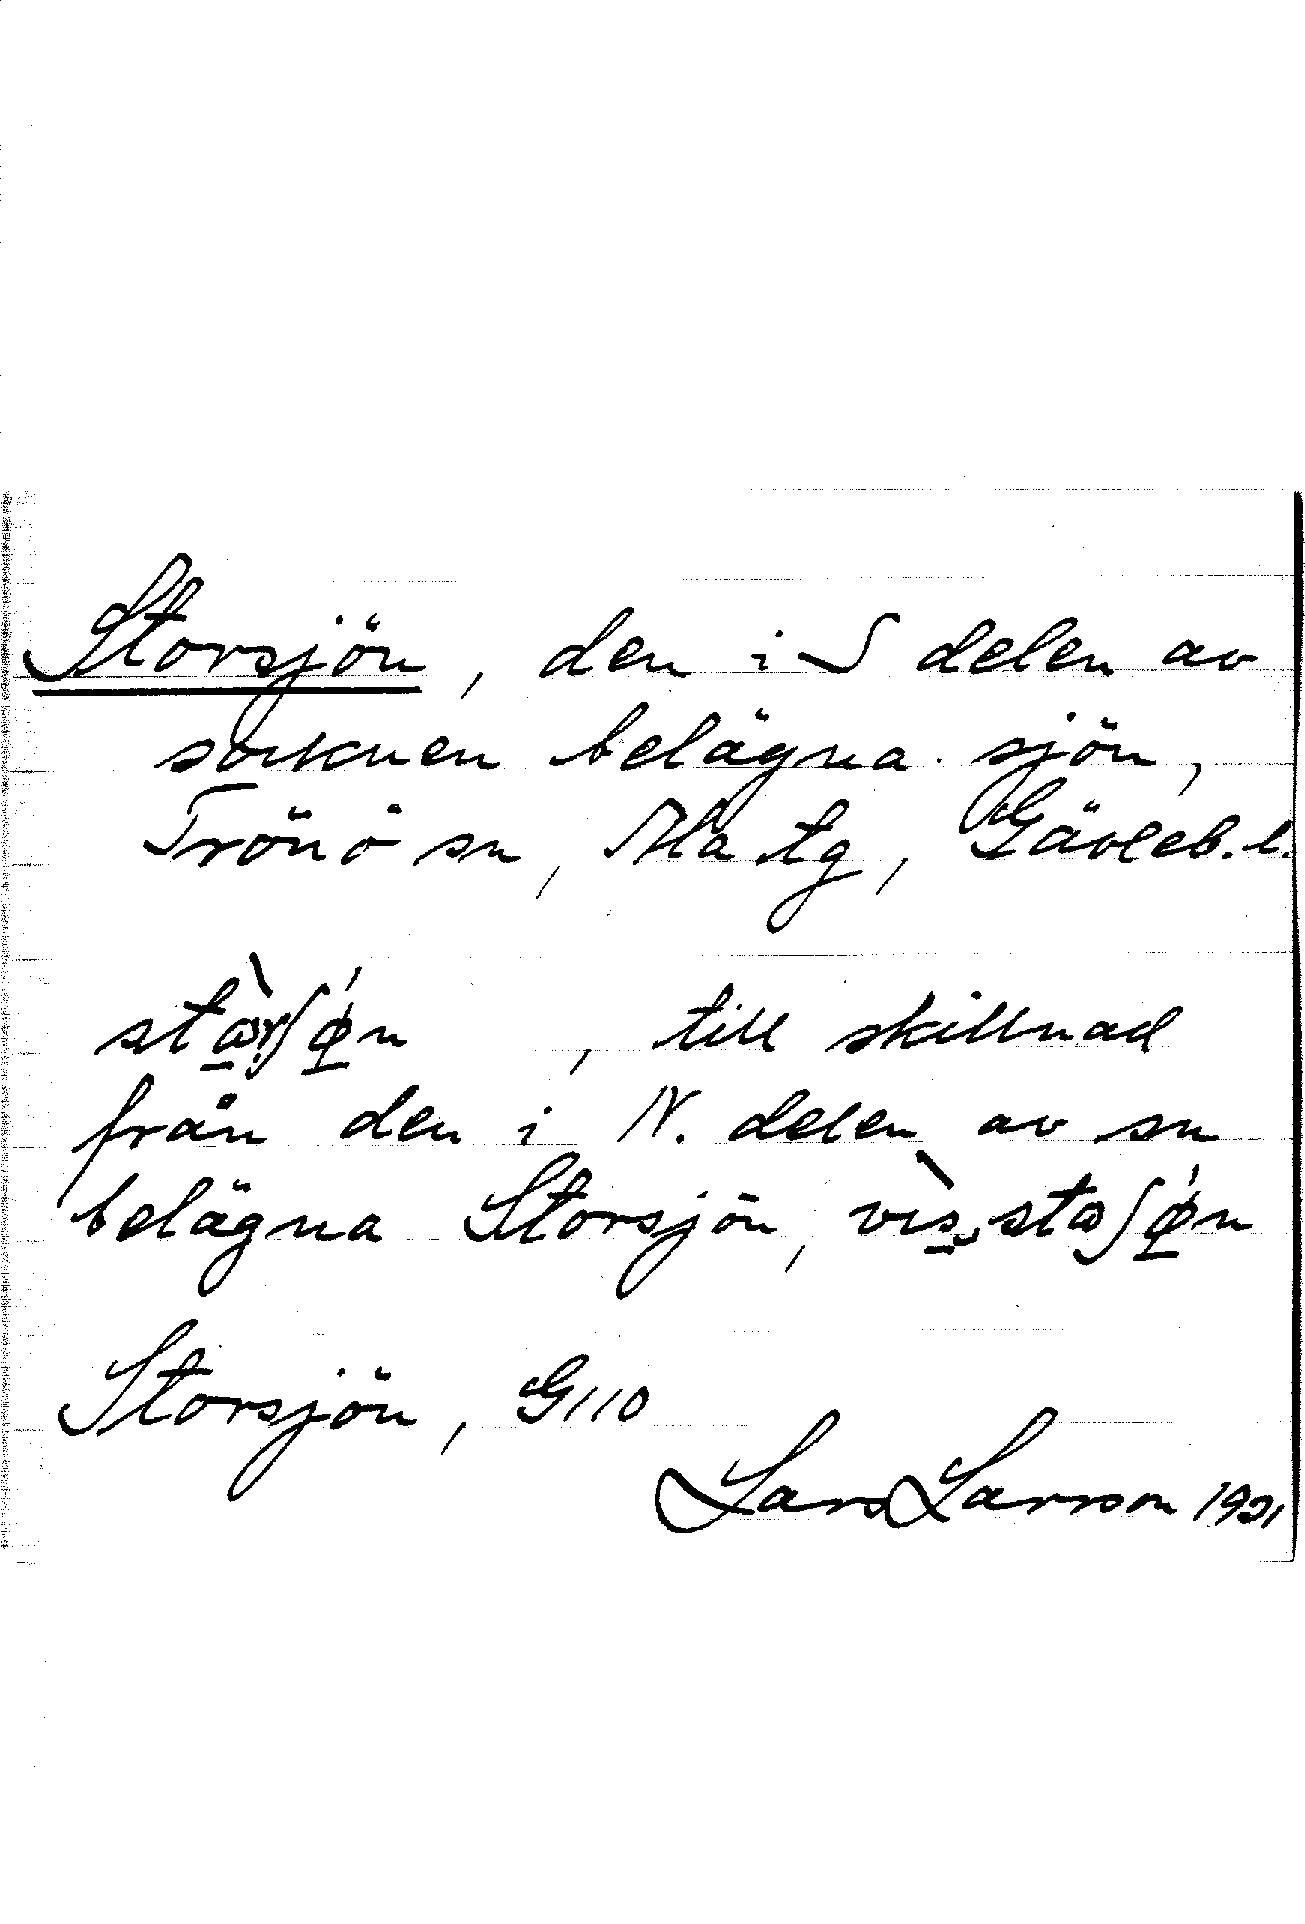 Storsjön, den i S delen av
socknen belägna sjön,
Trönö sn, Ala tg, Gävleb. l.
till skillnad
från den i N. delen av sn
belägna Storsjön,
Storsjön, G110
Lars Larsson 1921